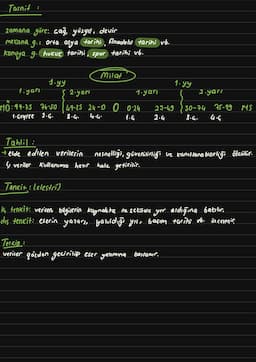 Tasnif :
zamana göre: çağ, yüzyıl, devir
mekana g.: orta asya tarihi, Anadolu tarihi vb.
konuya g. hukuk tarihi, spor tarihi vb.
Milat
1.yy 1.yy
1.yarı 2.yarı 1.yarı 2.yarı
MÖ: 99-75 74-50 49-25 24-0 0 0-24 25-49 50-74 75-99 MS
1.Çeyrek 2.Ç. 3.Ç. 4.Ç. 1.Ç 2.Ç 3.Ç. 4.Ç
Tahlil :
→ elde edilen verilerin nesnelliği, güvenilirliği ve
↳ veriler kullanıma hazır hale getirilir.
Tenkit : (eleştiri)
iç tenkit: verilen bilgilerin kaynakta ne şekilde yer aldığına bakılır.
dış tenkit: eserin yazarı, yazıldığı yer, basım tarihi vb incelenir.
Terkip :
veriler gözden geçirilip eser yazımına başlanır.